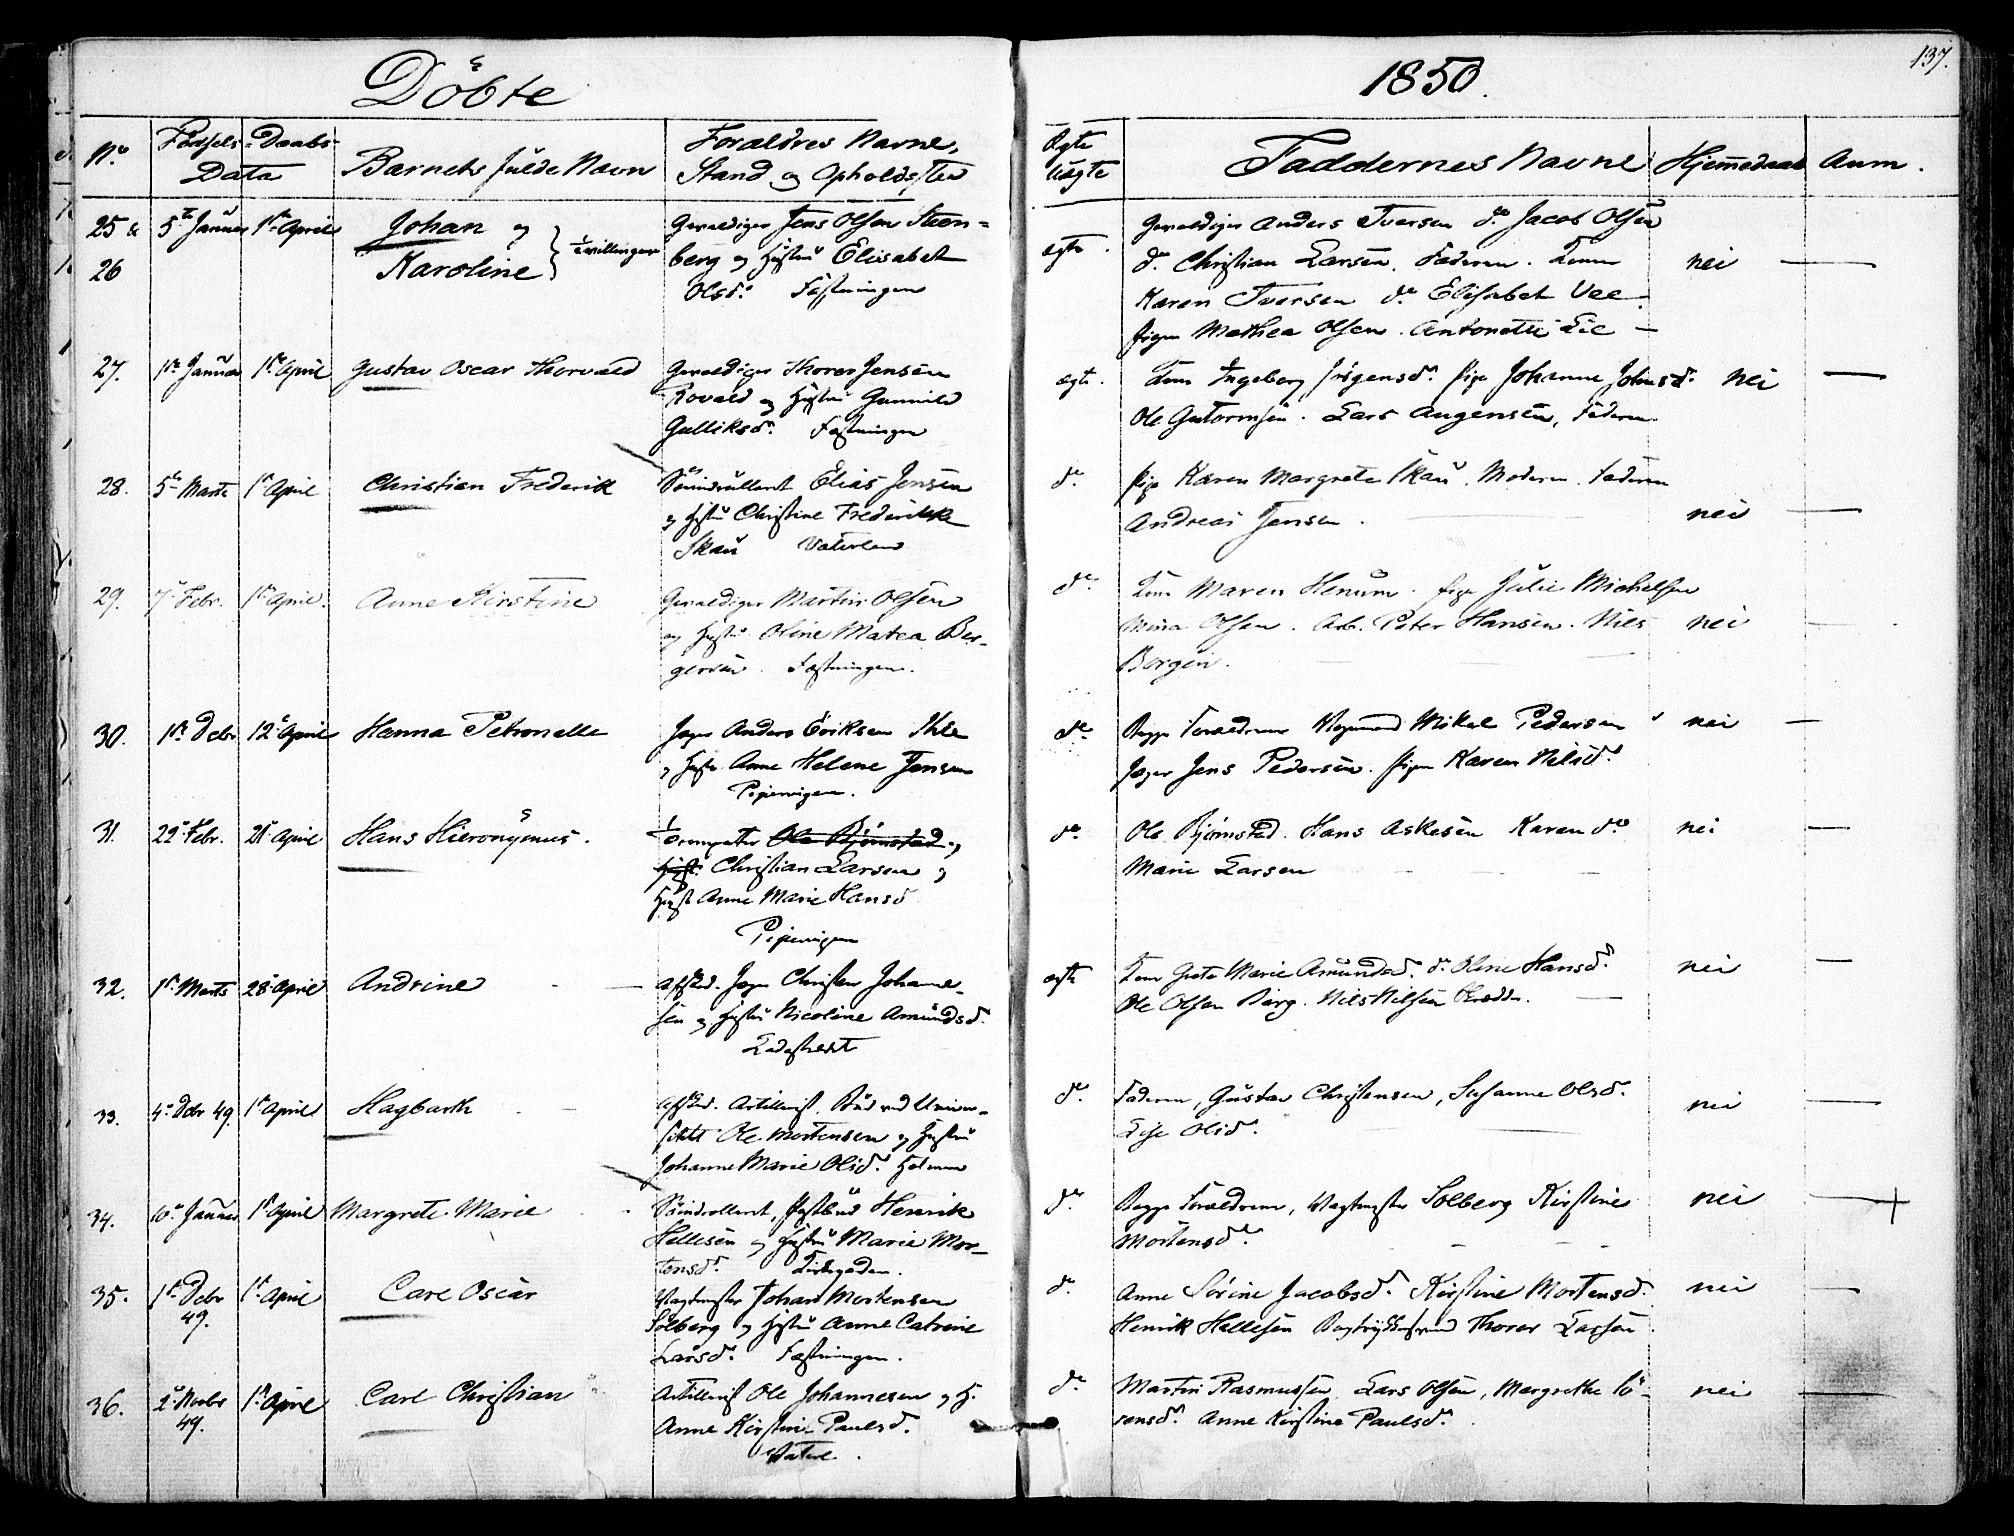 137.
Döbte
1850.
No
Födsels-
Daabs-
Data
Barnets fulde Navn
Forældres Navne,
Stand og Opholdssted
Ægte
Uægte
Faddernes Navne
Hjemmedaab
Anm.
25 &
26
5te Januar
1ste April
Johan og
Karoline
Tvillinger
Gevaldiger Jens Olsen Steen-
berg og Hustru Elisabet
Olsdr. Fæstningen
ægte.
Gevaldiger Anders Iversen do Jacob Olsen
do Christian Larsen. Faderen. Kone
Karen Iversen do Elisabet Vee.
Pigen Mathea Olsen. Antonette Lie
nei
27.
1ste Januar
1ste April
Gustav Oscar Thorvald
Gevaldiger Thorer Jensen
Rovald og Hustru Gunnild
Gulliksdr. Fæstningen
ægte.
Kone Ingeborg Jörgensdr. Pige Johanne Johnsdr.
Ole Gutormsen. Lars Augensen, Faderen
nei
28.
5te Marts
1ste April
Christian Frederik
Söindrulleret Elias Jensen
og Hustru Christine Frederikke
Skau Vaterland
do
Pige Karen Margrete Skau. Moderen. Faderen
Andreas Jensen.
nei
29.
7de Febr.
1ste April.
Anne Kirstine
Gevaldiger Martin Olsen
og Hustru Oline Matea Ber-
gersen. Fæstningen.
do
Kone Maren Henum. Pige Julie Michelsen
Mina Olsen. Arb. Peter Hansen. Nils
Borgen.
nei
30.
1ste Debr
12te April
Hanna Petronelle
Jæger Anders Eriksen Ihle
og Hustru Anne Helene Jensen
Pipervigen.
do
Begge Forældrene Vognmand Mikal Pedersen
Jæger Jens Pedersen. Pigen Karen Nilsdr.
nei
31.
22de Febr.
21de April
Hans Hieronymus.
Trompeter Ole Björnstad og
Hust. Christian Larsen og
Hust Anne Marie Hansd
Pipervigen
do
Ole Björnstad. Hans Askesen Karen do
Marie Larsen
nei
32.
1ste Marts
28de April
Andrine
Afsked. Jæger Christen Johanne-
sen og Hustru Nicoline Amundsd.
Ladestedet
ægte
Kone Grete Marie Amundsd. do Oline Hansdr.
Ole Olsen Berg. Nils Nilsen
nei
33.
4de Debr 49.
1ste April
Hagbarth
Afsked. Artillerist. Bud ved Univer-
sitetet Ole Mortensen og Hustru
Johanne Marie Olsdr. Holmen
do
Faderen, Gustav Christensen, Susanne Olsdr.
Lise Olsdr.
nei
34.
10de Januar
1ste April
Margrete Marie
Söindrulleret, Postbud Henrik
Hellesen og Hustru Marie Mor-
tensdr. Kirkegaden.
do
Begge Forældrene, Vagtmester Solberg Kirstine
Mortensdr.
nei
35.
1ste Debr
49.
1ste April
Carl Oscar
Vagtmester Johan Mortensen
Solberg og Hustru Anne Catrine
Larsdr. Fæstningen.
do
Anne Sörine Jacobsdr. Kirstine Mortensd.
Henrik Hellesen Bogtrykkersvend Thorer Larsen.
nei
36.
2den Novbr
49.
1ste April
Carl Christian
Artillerist Ole Johannesen og H.
Anne Kirstine Paulsd.
Vaterl.
do
Martin Rasmussen Lars Olsen, Margrethe Sö-
rensdr. Anne Kirstine Paulsdr.
nei